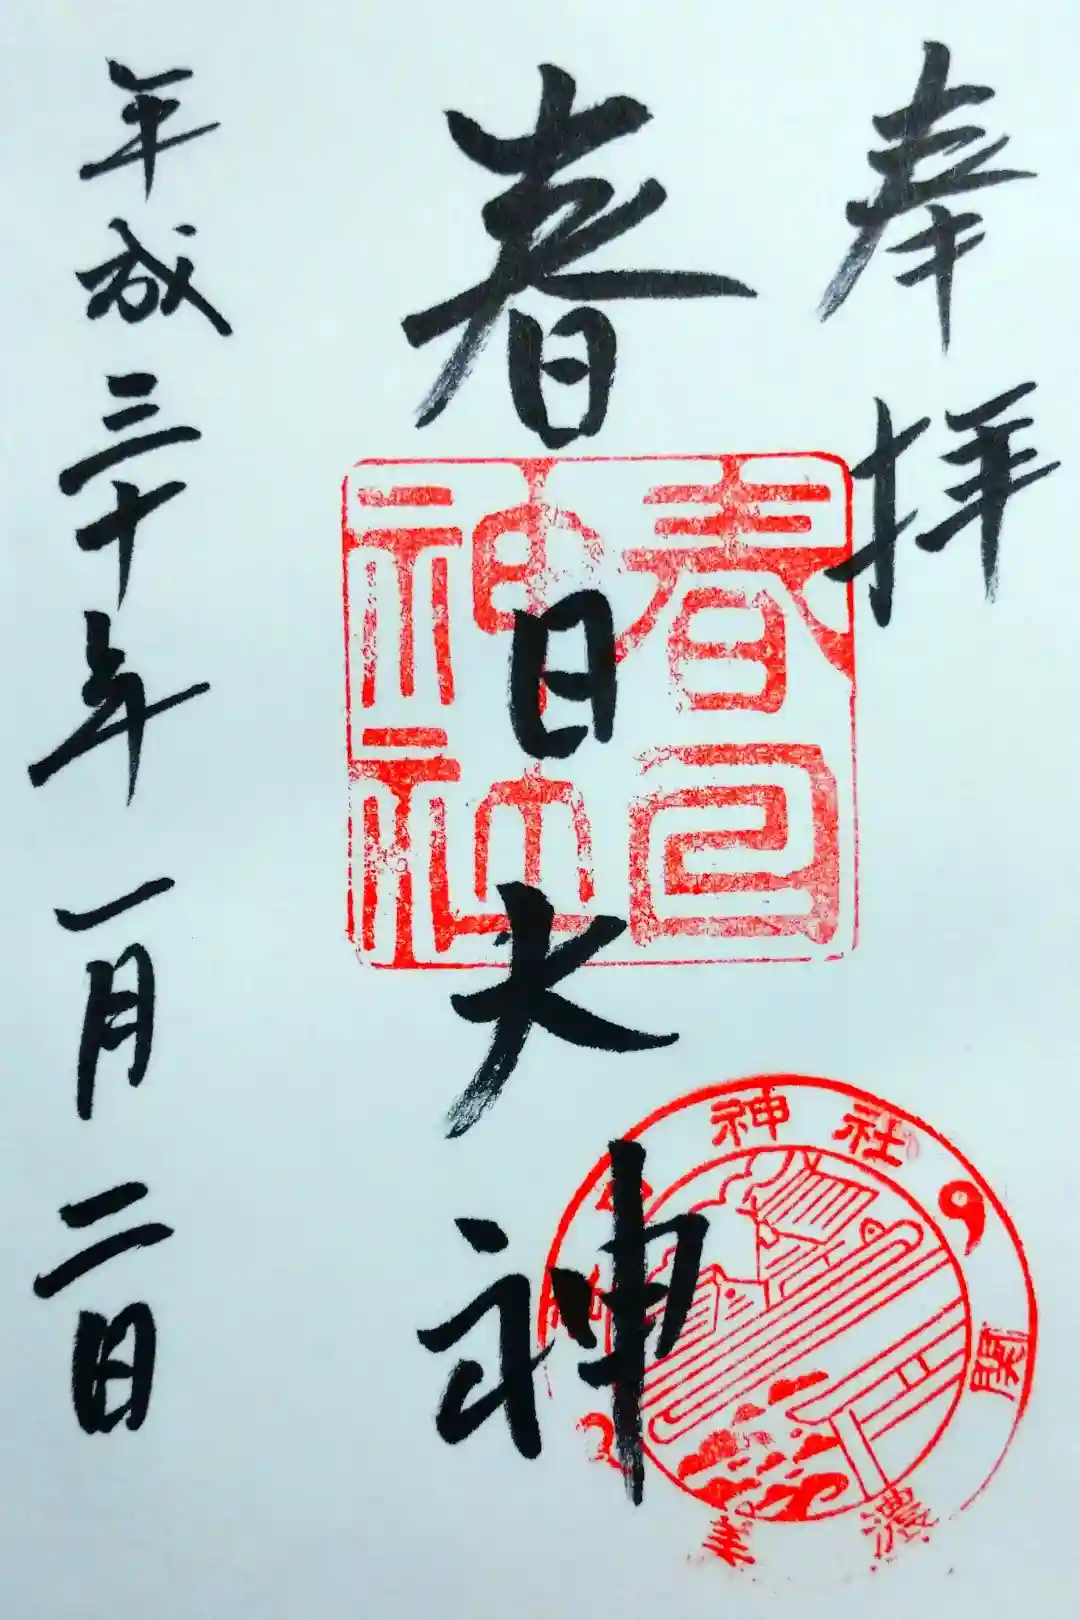 奉拝
春日大神
平成三十年一月二日
春日
神社
美濃
關
春日神社